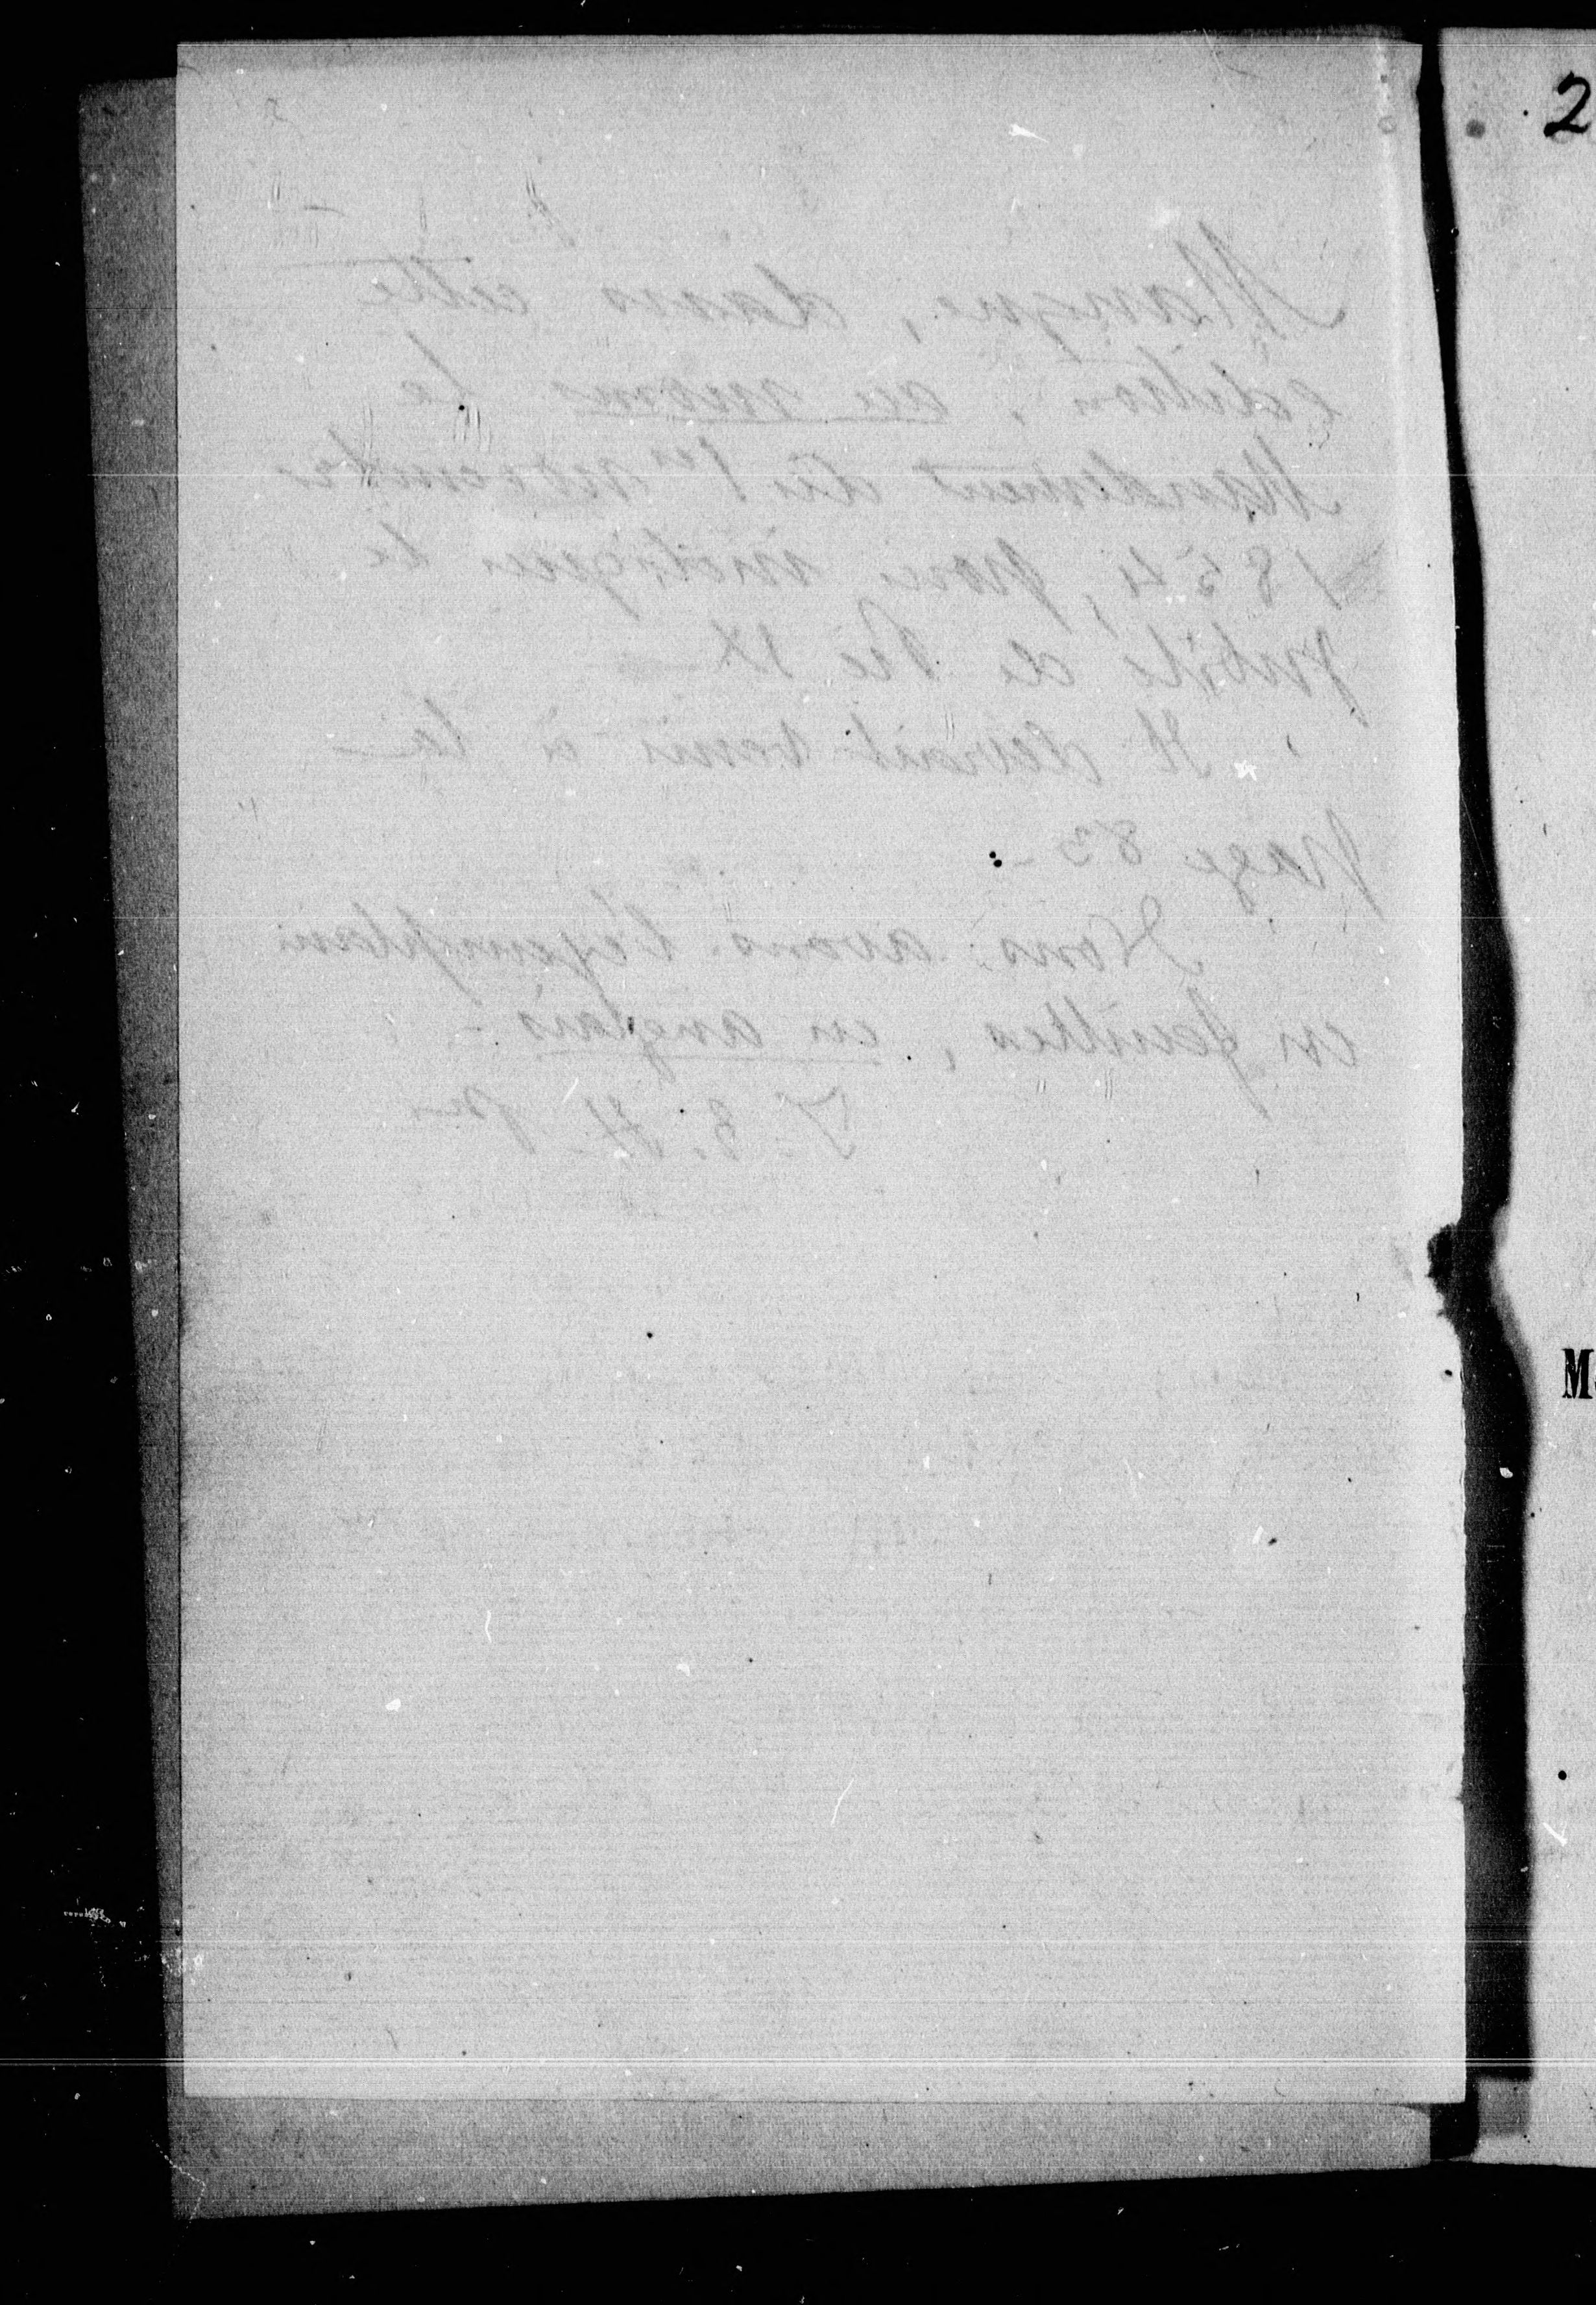 Manque, dans cette
édition, au moins le
Mandement du 1er novembre
1854, pour indiquer le
jubilé de Pie IX
Il devrait venir à la
page 83 -
Nous avons l'exemplaire
en feuilles, en anglais -
2
M